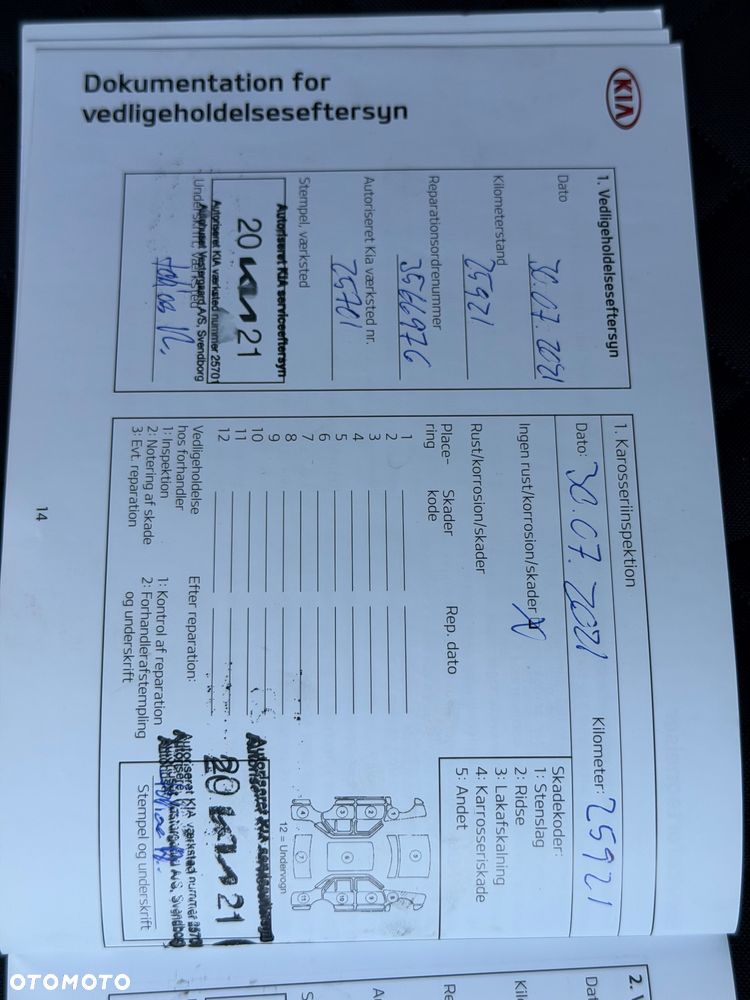 Dokumentation for
vedligeholdelseseftersyn
KIA
1. Vedligeholdelseseftersyn
Dato
30.07.2021
Kilometerstand
25921
Reparationsordrenummer
3566976
Autoriseret Kia værksted nr.
25701
Stempel, værksted
Autoriseret KIA serviceeftersyn
20 21
Autoriseret KIA værksted nummer 25701
Autohuset Vestergaard A/S, Svendborg
Underskrift, værksted
1. Karosseriinspektion
Dato: 30.07.2021
Kilometer: 25921
Ingen rust/korrosion/skader X
Rust/korrosion/skader
Place-
ring
Skader
kode
Rep. dato
1
2
3
4
5
6
7
8
9
10
11
12
Skadekoder:
1: Stenslag
2: Ridse
3: Lakafskalning
4: Karrosseriskade
5: Andet
12 = Undervogn
Vedligeholdelse
hos forhandler
1: Inspektion
2: Notering af skade
3: Evt. reparation
Efter reparation:
1: Kontrol af reparation
2: Forhandlerafstempling
og underskrift
Autoriseret KIA serviceeftersyn
20 21
Autoriseret KIA værksted nummer 25701
A/S, Svendborg
Stempel og underskrift
14
2. V
Da
Kil
Re
A
S
OTOMOTO